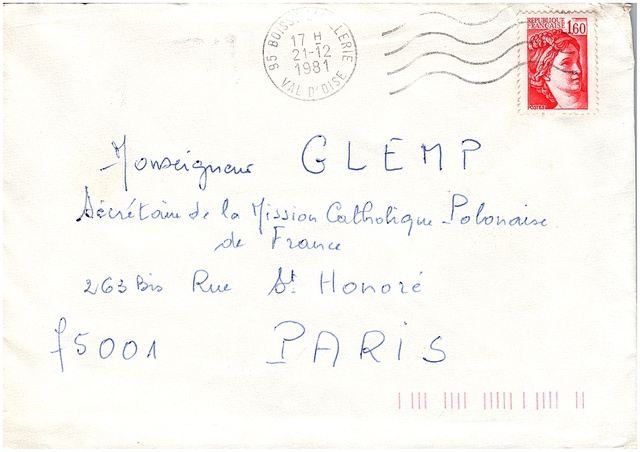 95 BOISSY L'AILLERIE
17 H
21-12
1981
VAL D'OISE
REPUBLIQUE
FRANÇAISE 1,60
POSTES
Monseigneur GLEMP
Sécrétaire de la Mission Catholique Polonaise
de France
263 Bis Rue St Honoré
75001 PARIS